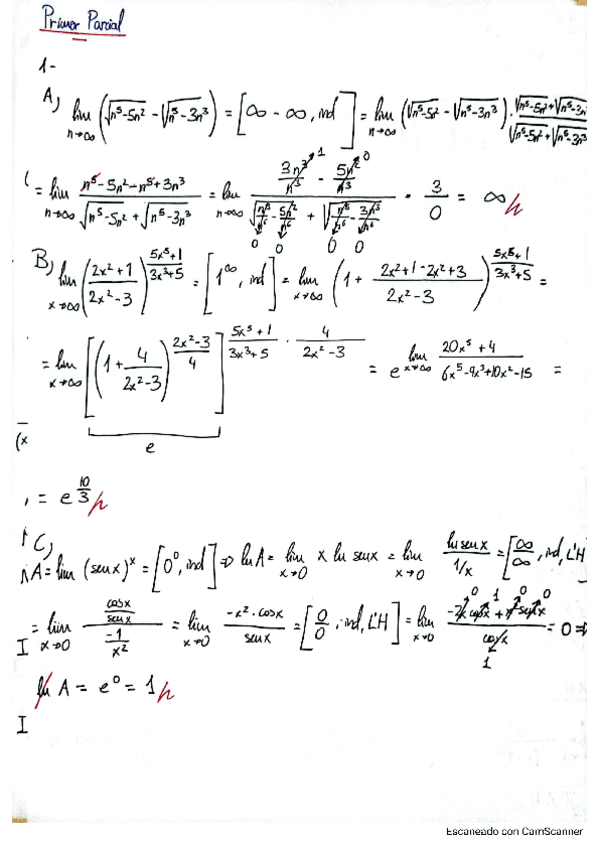 Primer Parcial
1-
A) lim n→∞ (√(n⁵-5n²) - √(n⁵-3n³)) = [∞ - ∞, ind] = lim n→∞ (√(n⁵-5n²) - √(n⁵-3n³)) · (√(n⁵-5n²) + √(n⁵-3n³))/(√(n⁵-5n²) + √(n⁵-3n³))
= lim n→∞ (n⁵-5n²-n⁵+3n³)/(√(n⁵-5n²) + √(n⁵-3n³)) = lim n→∞ (3n³/n³ - 5n²/n³)/(√(n⁵/n⁶ - 5n²/n⁶) + √(n⁵/n⁶ - 3n³/n⁶)) = 3/0 = ∞
B) lim x→∞ ((2x²+1)/(2x²-3))^((5x⁵+1)/(3x³+5)) = [1^∞, ind] = lim x→∞ (1 + (2x²+1-2x²+3)/(2x²-3))^((5x⁵+1)/(3x³+5)) =
= lim x→∞ [(1 + 4/(2x²-3))^((2x²-3)/4)]^((5x⁵+1)/(3x³+5) · 4/(2x²-3)) = e^(lim x→∞ (20x⁵+4)/(6x⁵-9x³+10x²-15)) =
e
(x
= e^(10/3)
C)
A = lim (senx)^x = [0⁰, ind] ⇒ ln A = lim x→0 x ln senx = lim x→0 (ln senx)/(1/x) = [∞/∞, ind, L'H]
= lim x→0 (cosx/senx)/(-1/x²) = lim x→0 (-x²·cosx)/senx = [0/0, ind, L'H] = lim x→0 (-2x cosx + x² senx)/cosx = 0 ⇒
I
ln A = e⁰ = 1
I
Escaneado con CamScanner